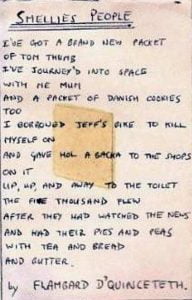 SMELLIES PEOPLE
I'VE GOT A BRAND NEW PACKET
OF TOM THUMB
I'VE JOURNEY'D INTO SPACE
WITH ME MUM
AND A PACKET OF DANISH COOKIES
TOO
I BORROWED JEFF'S BIKE TO KILL
MYSELF ON
AND GAVE A BACKA TO THE SHOPS
ON IT
UP, UP, AND AWAY TO THE TOILET
THE FIVE THOUSAND FLEW
AFTER THEY HAD WATCHED THE NEWS
AND HAD THEIR PIES AND PEAS
WITH TEA AND BREAD
AND GUTTER.
by FLAMGARD D'QUINCETETH.